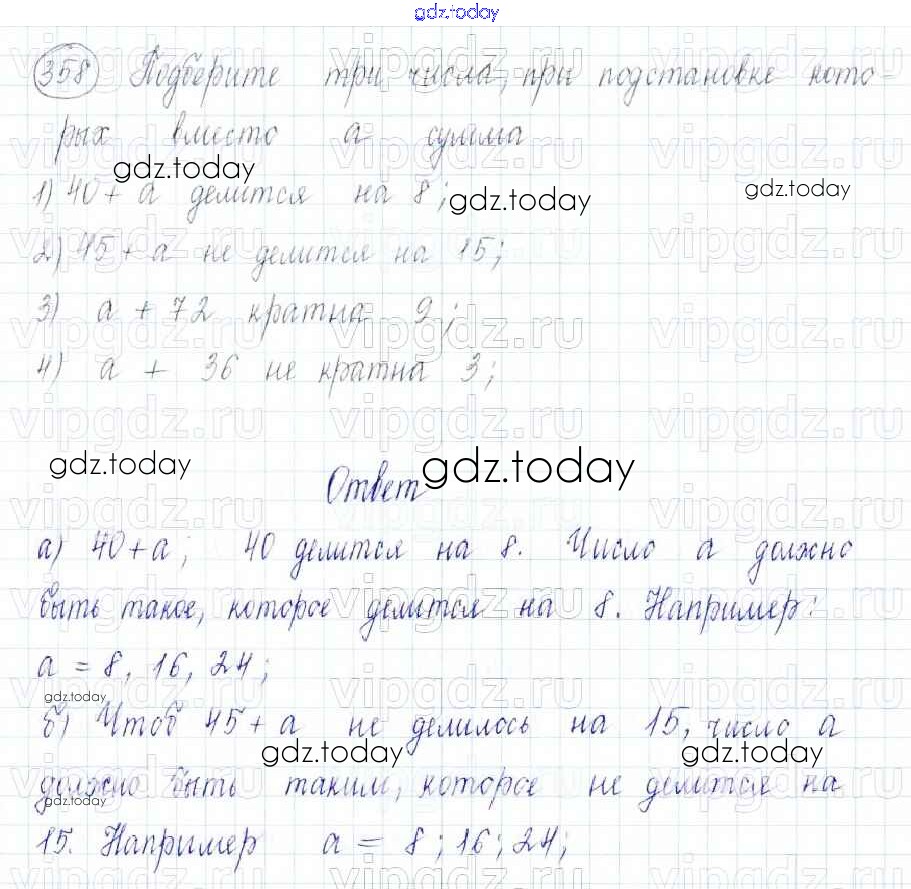 gdz.today
358 Подберите три числа, при подстановке кото-
рых вместо а сумма
gdz.today
1) 40 + а делится на 8;
gdz.today
gdz.today
2) 45 + а не делится на 15;
3) а + 72 кратна 9;
4) а + 36 не кратна 3;
gdz.today
Ответ
gdz.today
а) 40 + а; 40 делится на 8. Число а должно
быть такое, которое делится на 8. Например:
а = 8, 16, 24;
gdz.today
б) Чтоб 45 + а не делилось на 15, число а
gdz.today
gdz.today
должно быть таким, которое не делится на
gdz.today
15. Например а = 8; 16; 24;
vipgdz.ru